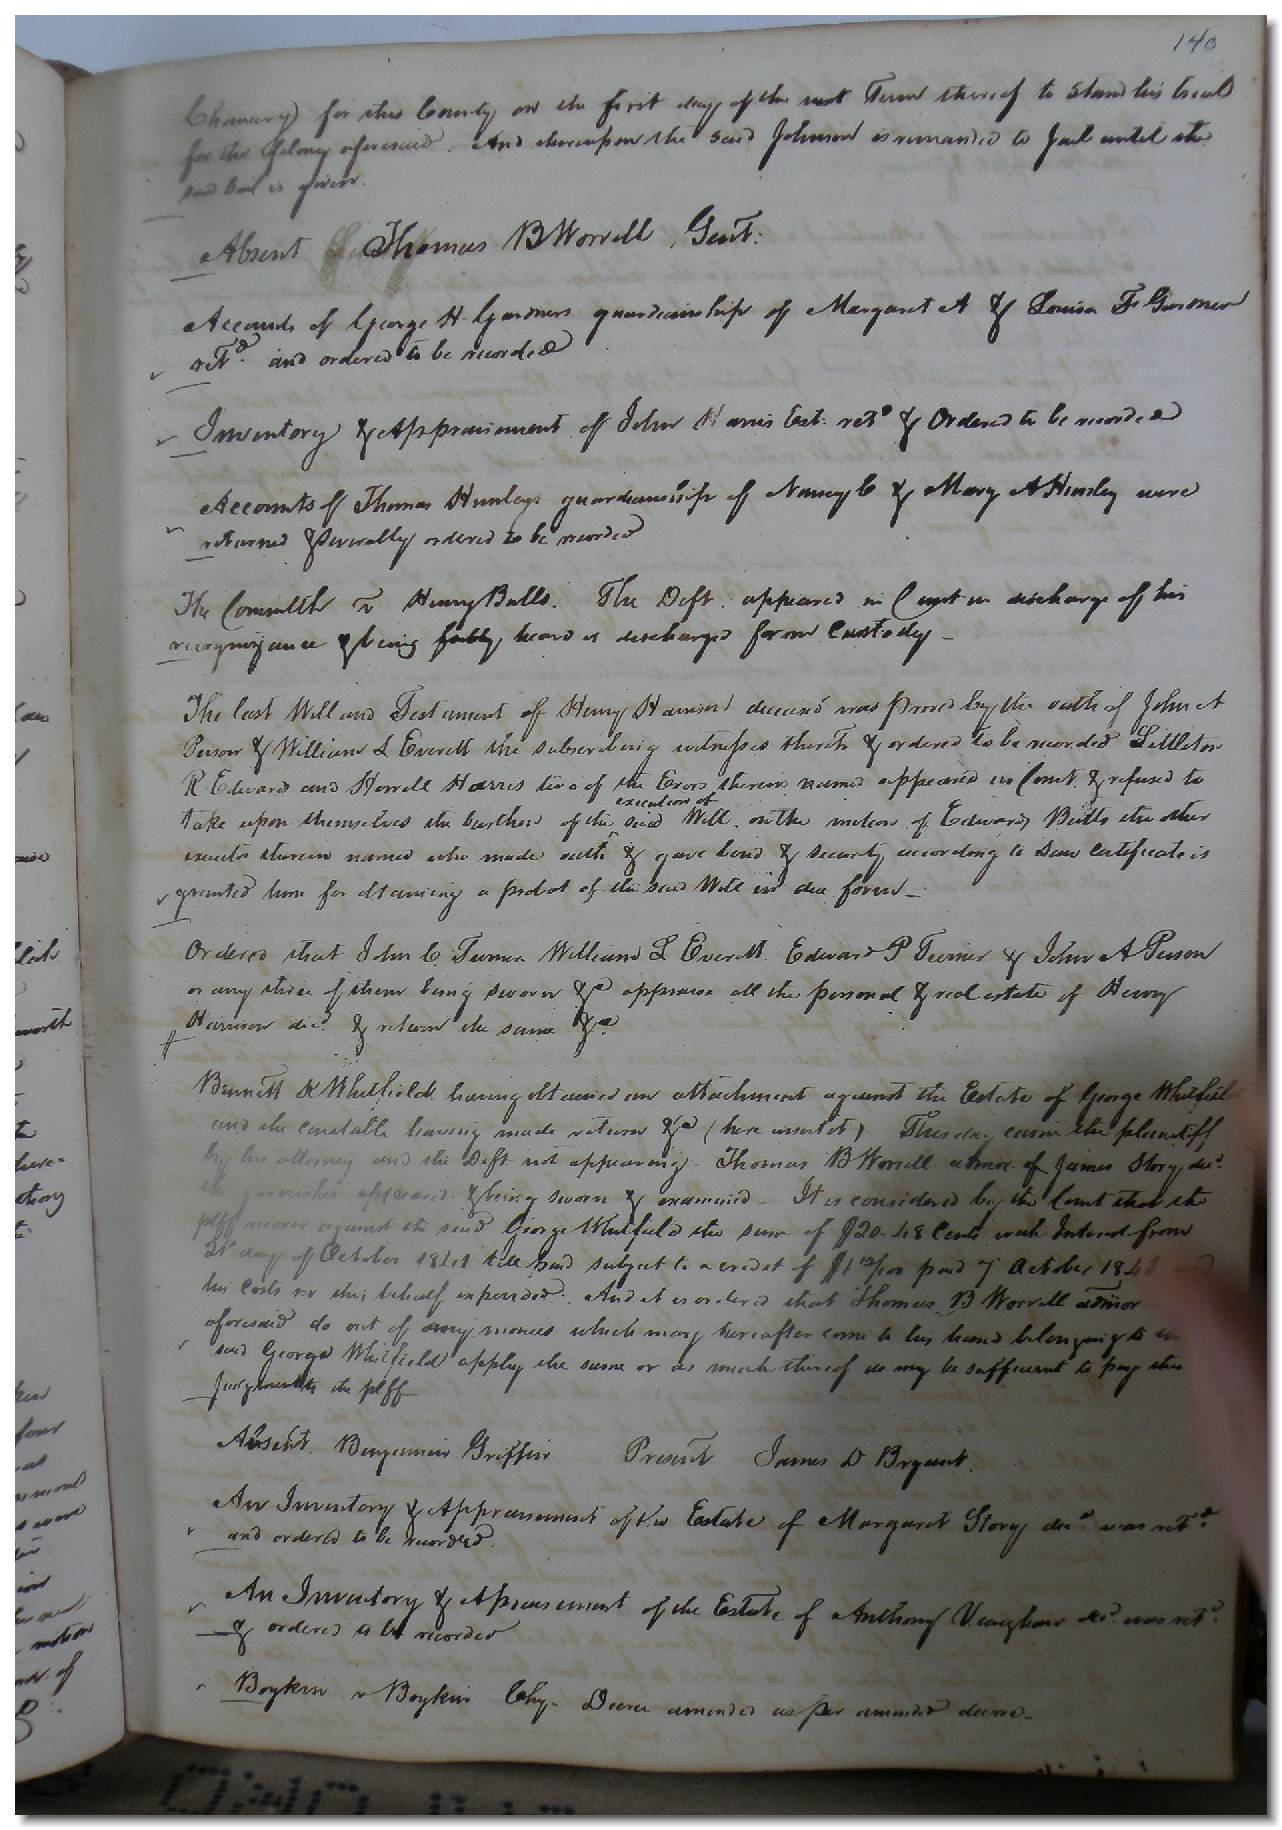 140
Chancery) for this County on the first day of the next Term thereof to stand his trial
for the felony aforesaid. And thereupon the said Johnson is remanded to Jail until the
said bail is given.
Absent Thomas B Worrell, Gent:
Accounts of George H Gardners guardianship of Margaret A & Louisa F Gardner
retd. and ordered to be recorded
Inventory & Appraisement of John Harris Est: retd & Ordered to be recorded
Accounts of Thomas Hunleys guardianship of Nancy C & Mary A Hunley were
returned & severally ordered to be recorded
The Comwlth v Henry Balls. The Deft. appeared in Court in discharge of his
recognizance & being fully heard is discharged form Custody -
The last Will and Testament of Henry Harrison deceasd was proved by the oath of John A
Person & William L Everett the subscribing witnesses thereto & ordered to be recorded Littleton
R Edward and Horrell Harris two of the Exors therein named appeared in Court & refused to
take upon themselves the burthen of the execution of said Will. on the motion of Edward Butts the other
executor therein named who made oath & gave bond & security according to Law certificate is
granted him for obtaining a probat of the said Will in due form -
Ordered that John C. Turner William L Everett Edward P Turner & John A Person
or any three of them being sworn &c appraise all the personal & real estate of Henry
Harrison decd. & return the same &c
Bennett & Whitfield having obtained an attachment against the Estate of George Whitfield
and the constable having made return &c (here insert it). This day came the plaintiff
by his attorney and the Deft not appearing. Thomas B Worrell admor. of James Story decd.
the garnishee appeared & being sworn & examined - It is considered by the Court that the
plff recover against the said George Whitfield the sum of $20.48 Cents with Interest from
21st day of October 1841 till paid subject to a credit of $1 12/100 paid 7 October 1843 and
his costs in this behalf expended. And it is ordered that Thomas B Worrell admor
aforesaid do out of any monies which may hereafter come to his hand belonging to the
said George Whitfield apply the same or as much thereof as may be sufficient to pay this
Judgment to the plff
Absent. Benjamin Griffin Present James D Bryant.
An Inventory & Appraisement of the Estate of Margaret Story decd. was retd.
and ordered to be recorded.
An Inventory & Apraisement of the Estate of Anthony Vaughan decd. was retd.
& ordered to be recorded
Boykin v Boykin Chy - Decree amended as per amended decree -